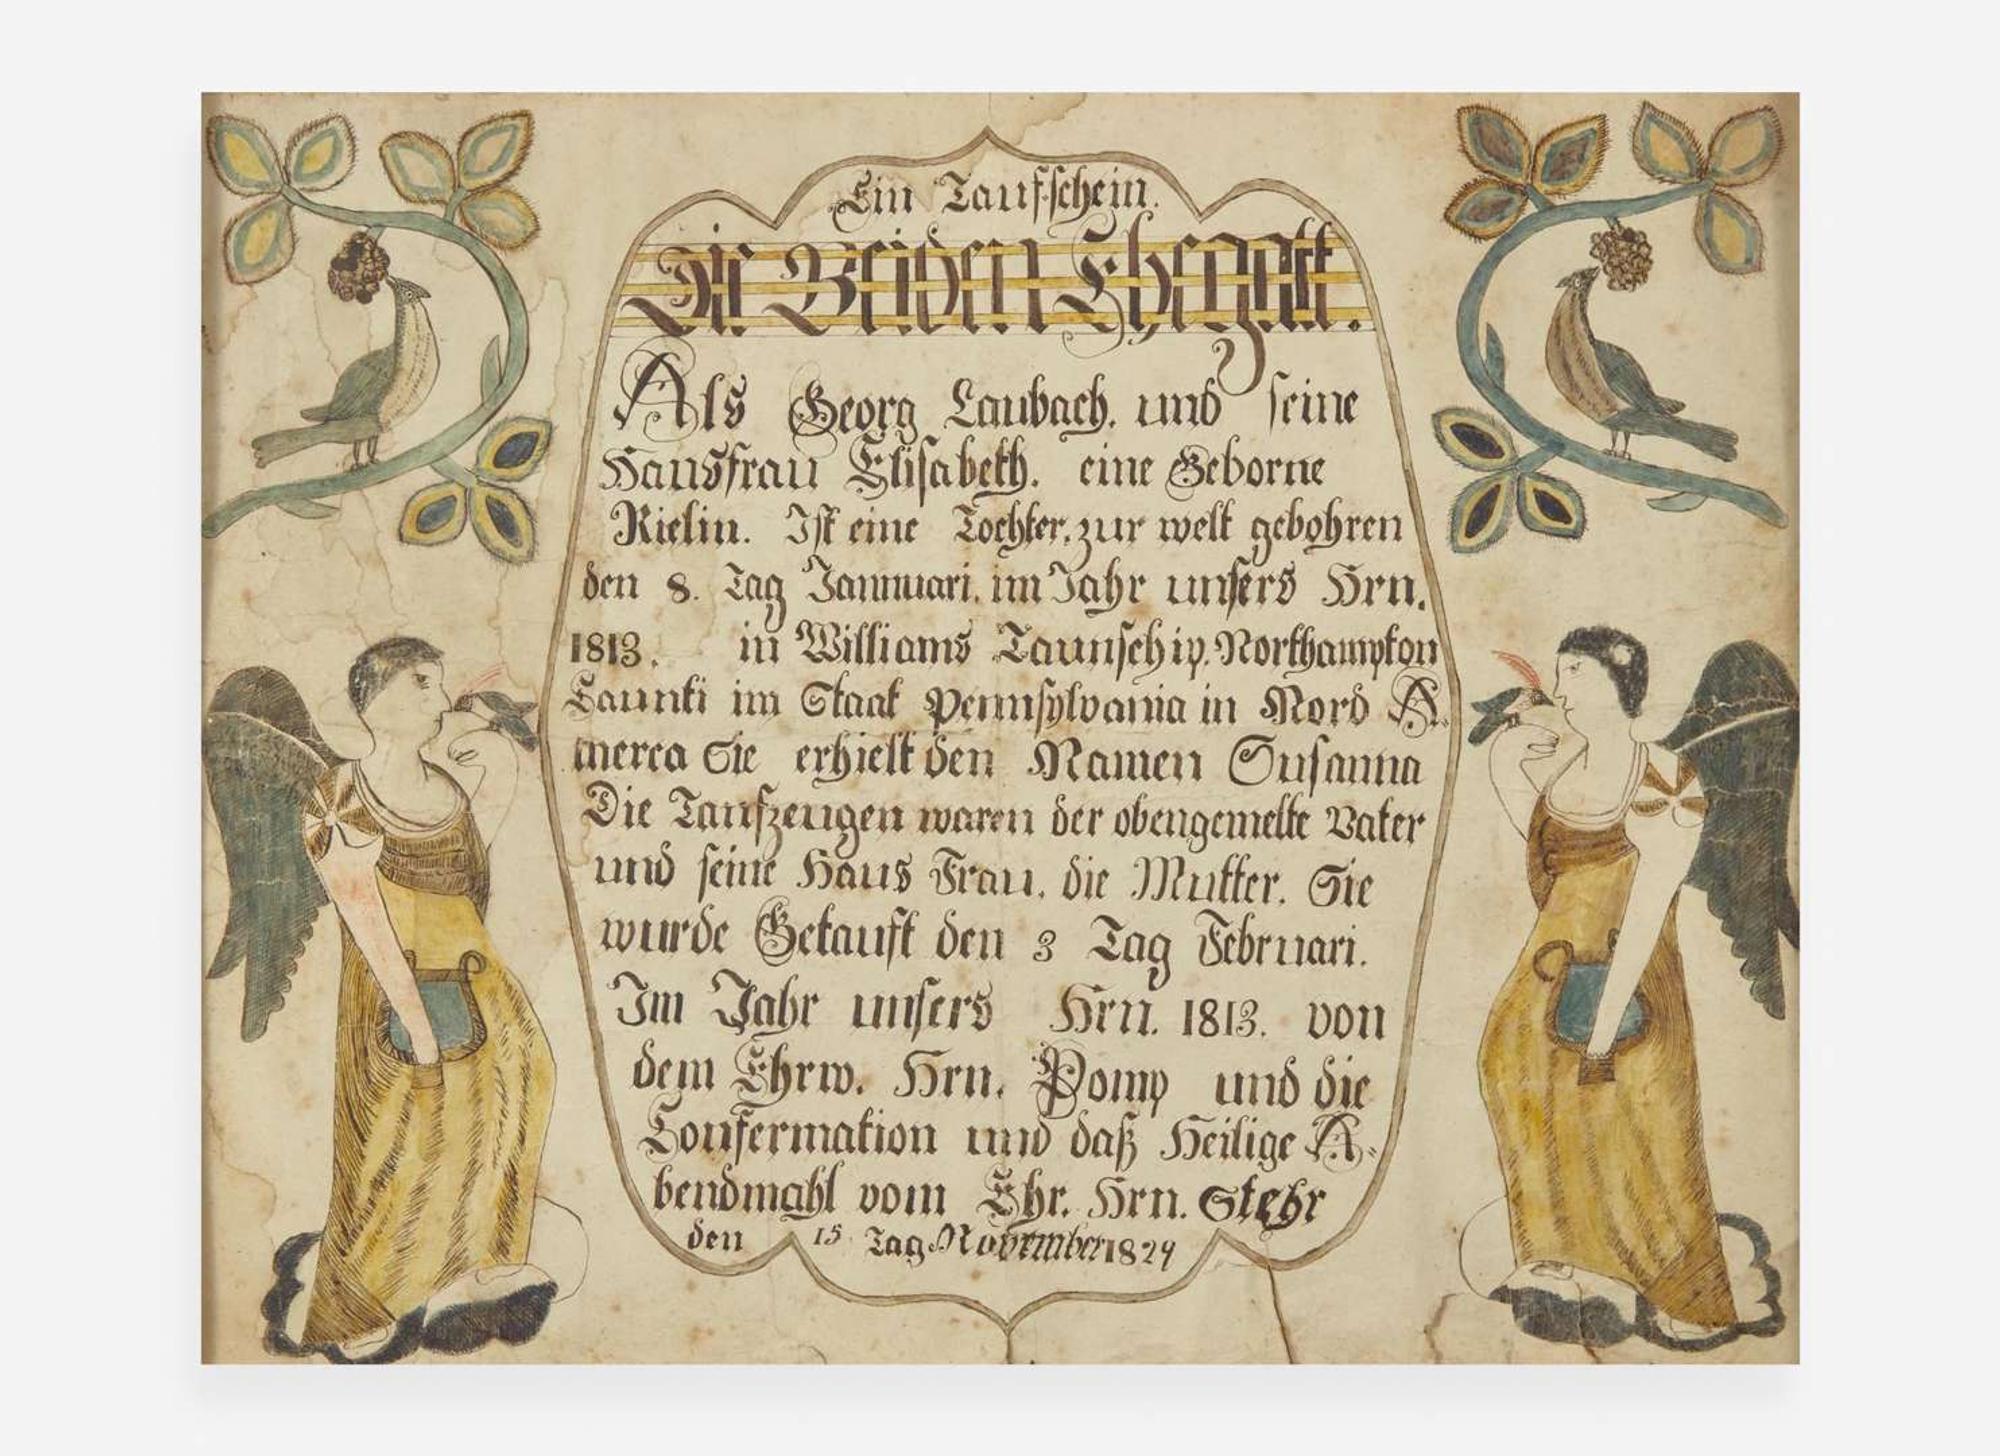 Ein Taufschein.
Die Beiden Ehegatt.
Als Georg Laubach. und seine
Hausfrau Elisabeth. eine Geborne
Rielin. Ist eine Tochter, zur welt gebohren
den 8. Tag Januuari. im Jahr unsers Hrn.
1813. in Williams Taunschip. Northampton
Caunti im Staat Pennsylvania in Nord A-
merea Sie erhielt den Namen Susanna
Die Taufzeugen waren der obengemelte Vater
und seine Haus Frau, die Mutter. Sie
wurde Getauft den 3 Tag Februari.
Im Jahr unsers Hrn. 1813. von
dem Ehrw. Hrn. Pomp und die
Confermation und daß Heilige A-
bendmahl vom Ehr. Hrn. Stehr
den 15 Tag November 1829